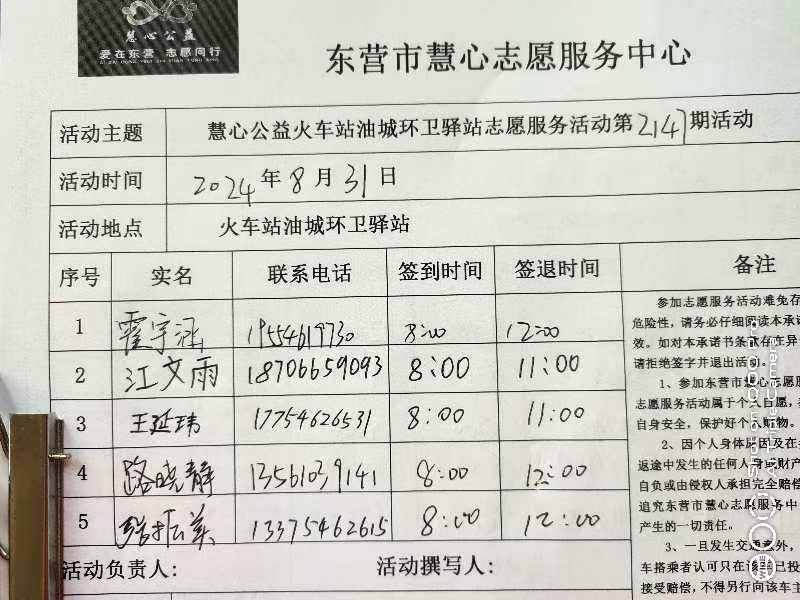 慧心公益
爱在东营 志愿同行
东营市慧心志愿服务中心
活动主题 慧心公益火车站油城环卫驿站志愿服务活动第2147期活动
活动时间 2024年8月31日
活动地点 火车站油城环卫驿站
序号 实名 联系电话 签到时间 签退时间 备注
1 霍宇涵 19554619730 8:00 12:00
2 江文雨 18706659093 8:00 11:00
3 王延玮 17754626531 8:00 11:00
4 路晓静 13561039141 8:00 12:00
5 13375462615 8:00 12:00
参加志愿服务活动难免存
危险性，请务必仔细阅读本承诺
效。如对本承诺书条款存在异
请拒绝签字并退出活动。
1、参加东营市慧心志愿服
志愿服务活动属于个人自愿，
自身安全，保护好个人财物。
2、因个人身体原因及在
返途中发生的任何人身或财产
自负或由侵权人承担完全赔偿
追究东营市慧心志愿服务中
产生的一切责任。
3、一旦发生交通意外，
车搭乘者认可只在该车已投
接受赔偿，不得另行向该车主
活动负责人： 活动撰写人：